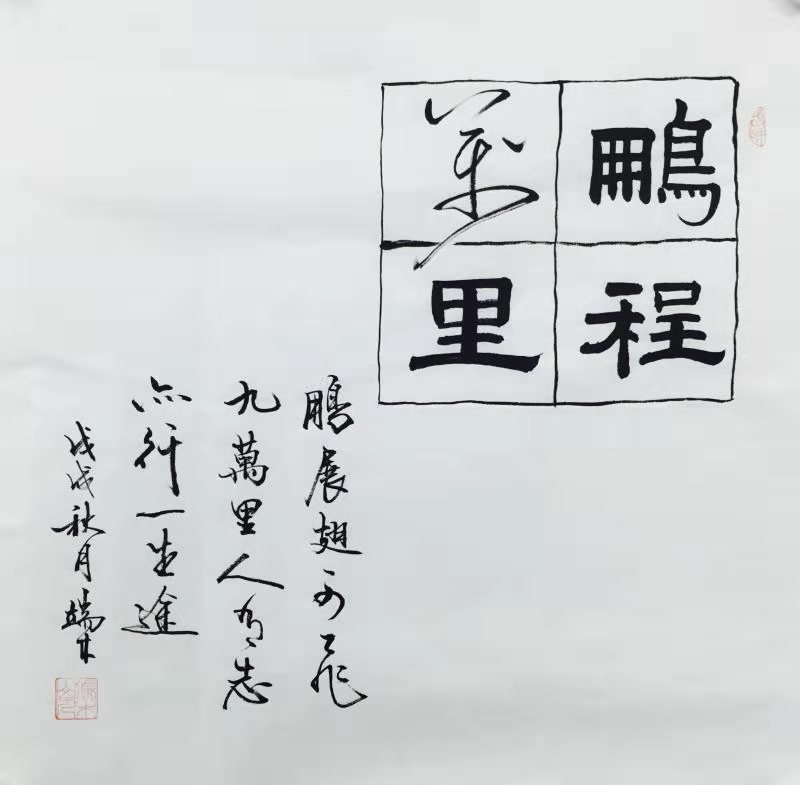 鵬程
萬里
鵬展翅可飛
九萬里人有志
亦行一生途
戊戌秋月端木